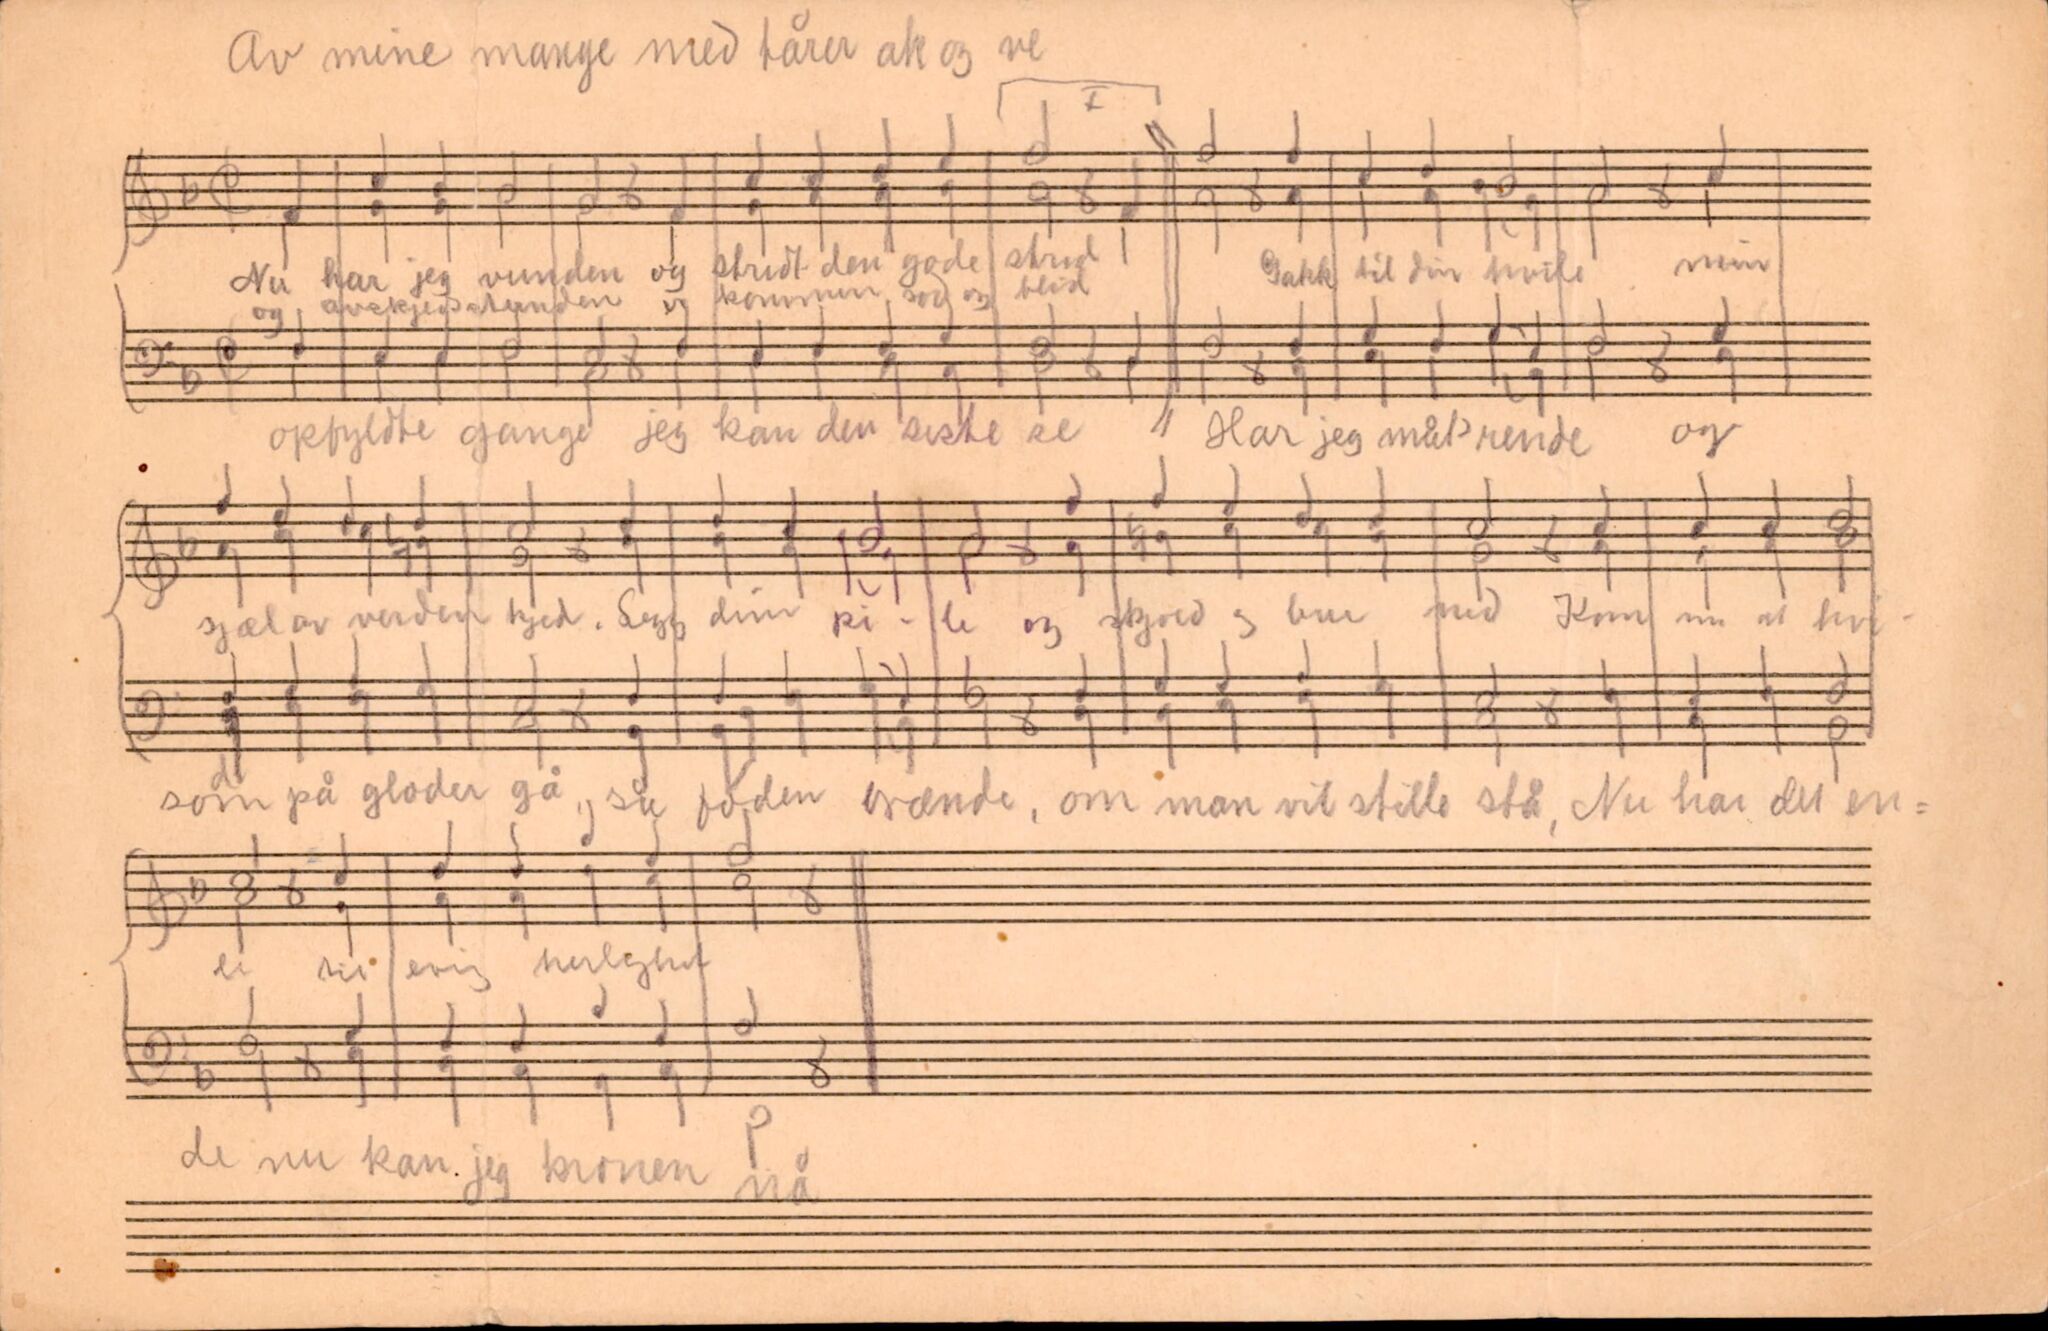 Av mine mange med tårer ak og ve
I
Nu har jeg vunden og stridt den gode strid Gakk til din hvile min
og avskjedsstunden er kommen sød og blid
opfyldte gange jeg kan den siste se Har jeg måt rende og
sjæl av verden kjed. Legg dine pi - le og skjold og bue ned Kom nu at hvi -
som på gløder gå, så foden brænde, om man vil stille stå, Nu har det en =
le til evig herlighet
de nu kan jeg kronen nå